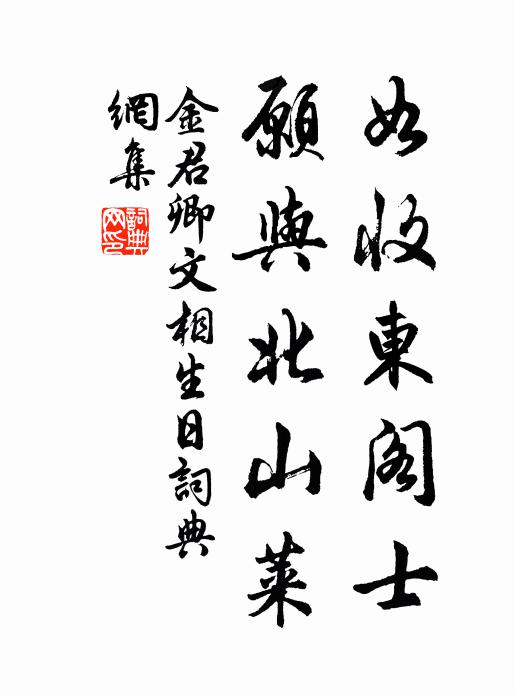 如收東阁士
願與北山萊
金君卿文相生日詞典
網集
詞典网印